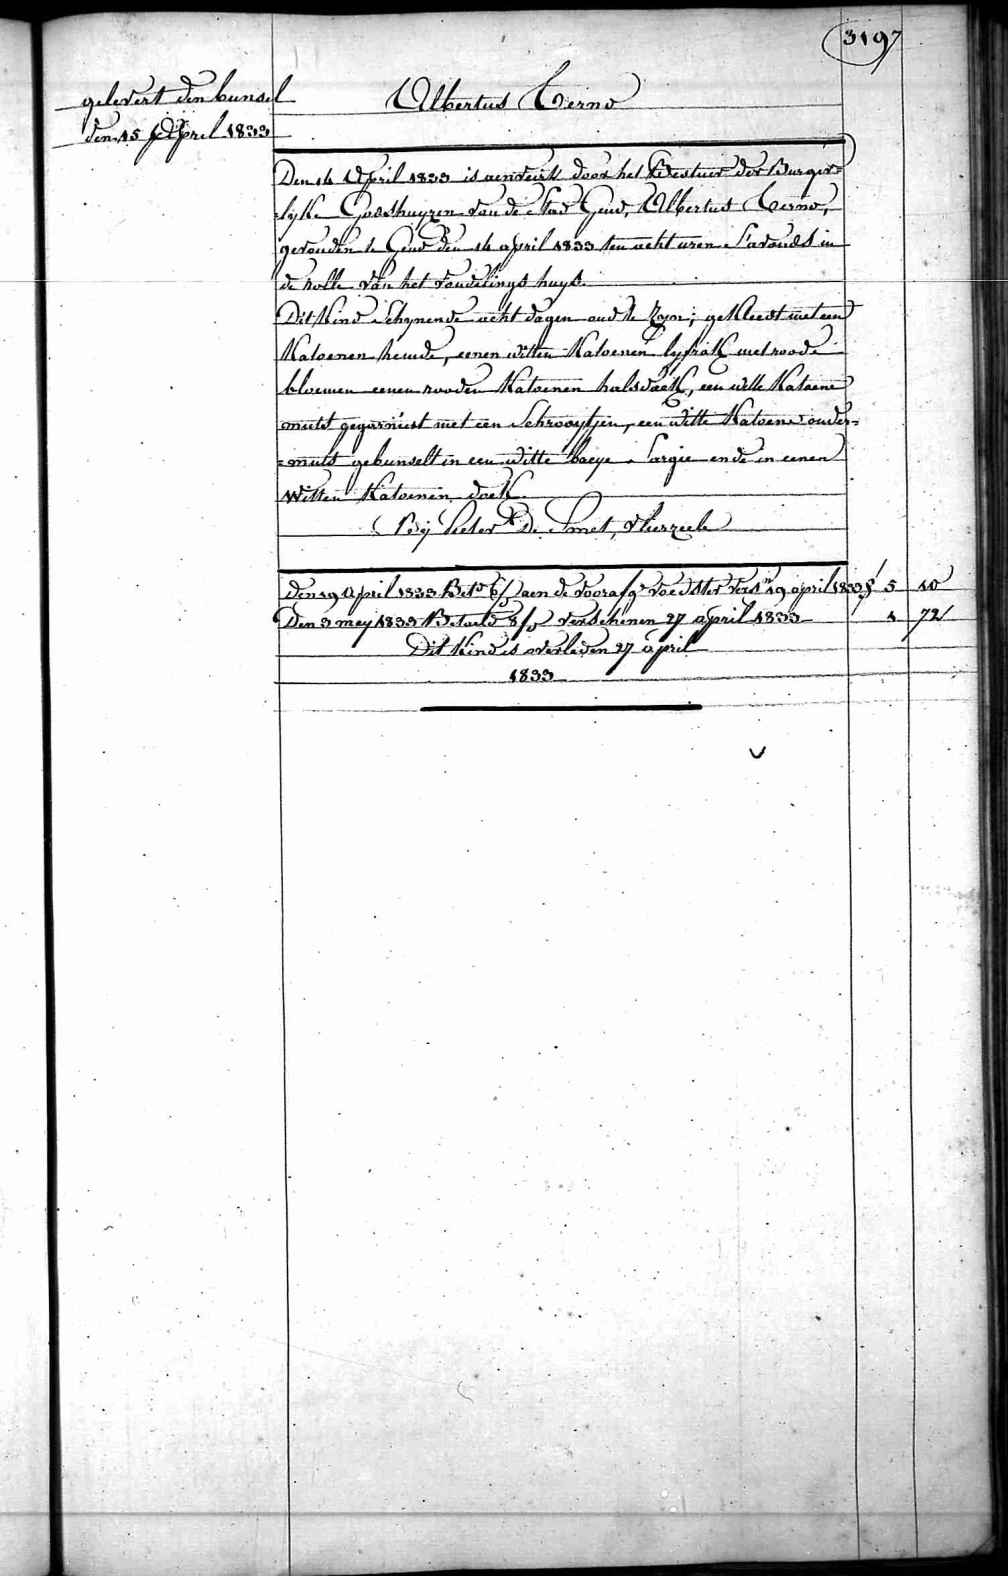 3197
gelevert den bunsel
den 15 April 1833
Albertus Terno
Den 14 April 1833 is aenveirt door het Bestuer der Burger=
=lyke Godshuyzen van de Stad Gend, Albertus Terno,
gevonden te Gend den 14 april 1833 ten acht uren S'avonds in
de rolle van het vondelings huys.
Dit kind schynende acht dagen oud te zyn; gekleest met een
Katoenen hemde, eenen witten Katoenen lyfrak met roode
bloemen eenen rooden Katoenen halsdoek, een witte Katoene
muts gegarniert met een Schrooytjen, een witte Katoene onder=
=muts gebunselt in een witte baeye Sargie ende in eenen
witten Katoenen doek.
By Pieter De Smet, Vlierzeele
den 19 April 1833 Bet.d 6/ aen de voorafg.e voedster vers.n 19 april 1833 f 5 10
Den 3 mey 1833 Betaeld 8/ verschenen 27 april 1833 1 72
Dit kind is overleden 27 april
1833